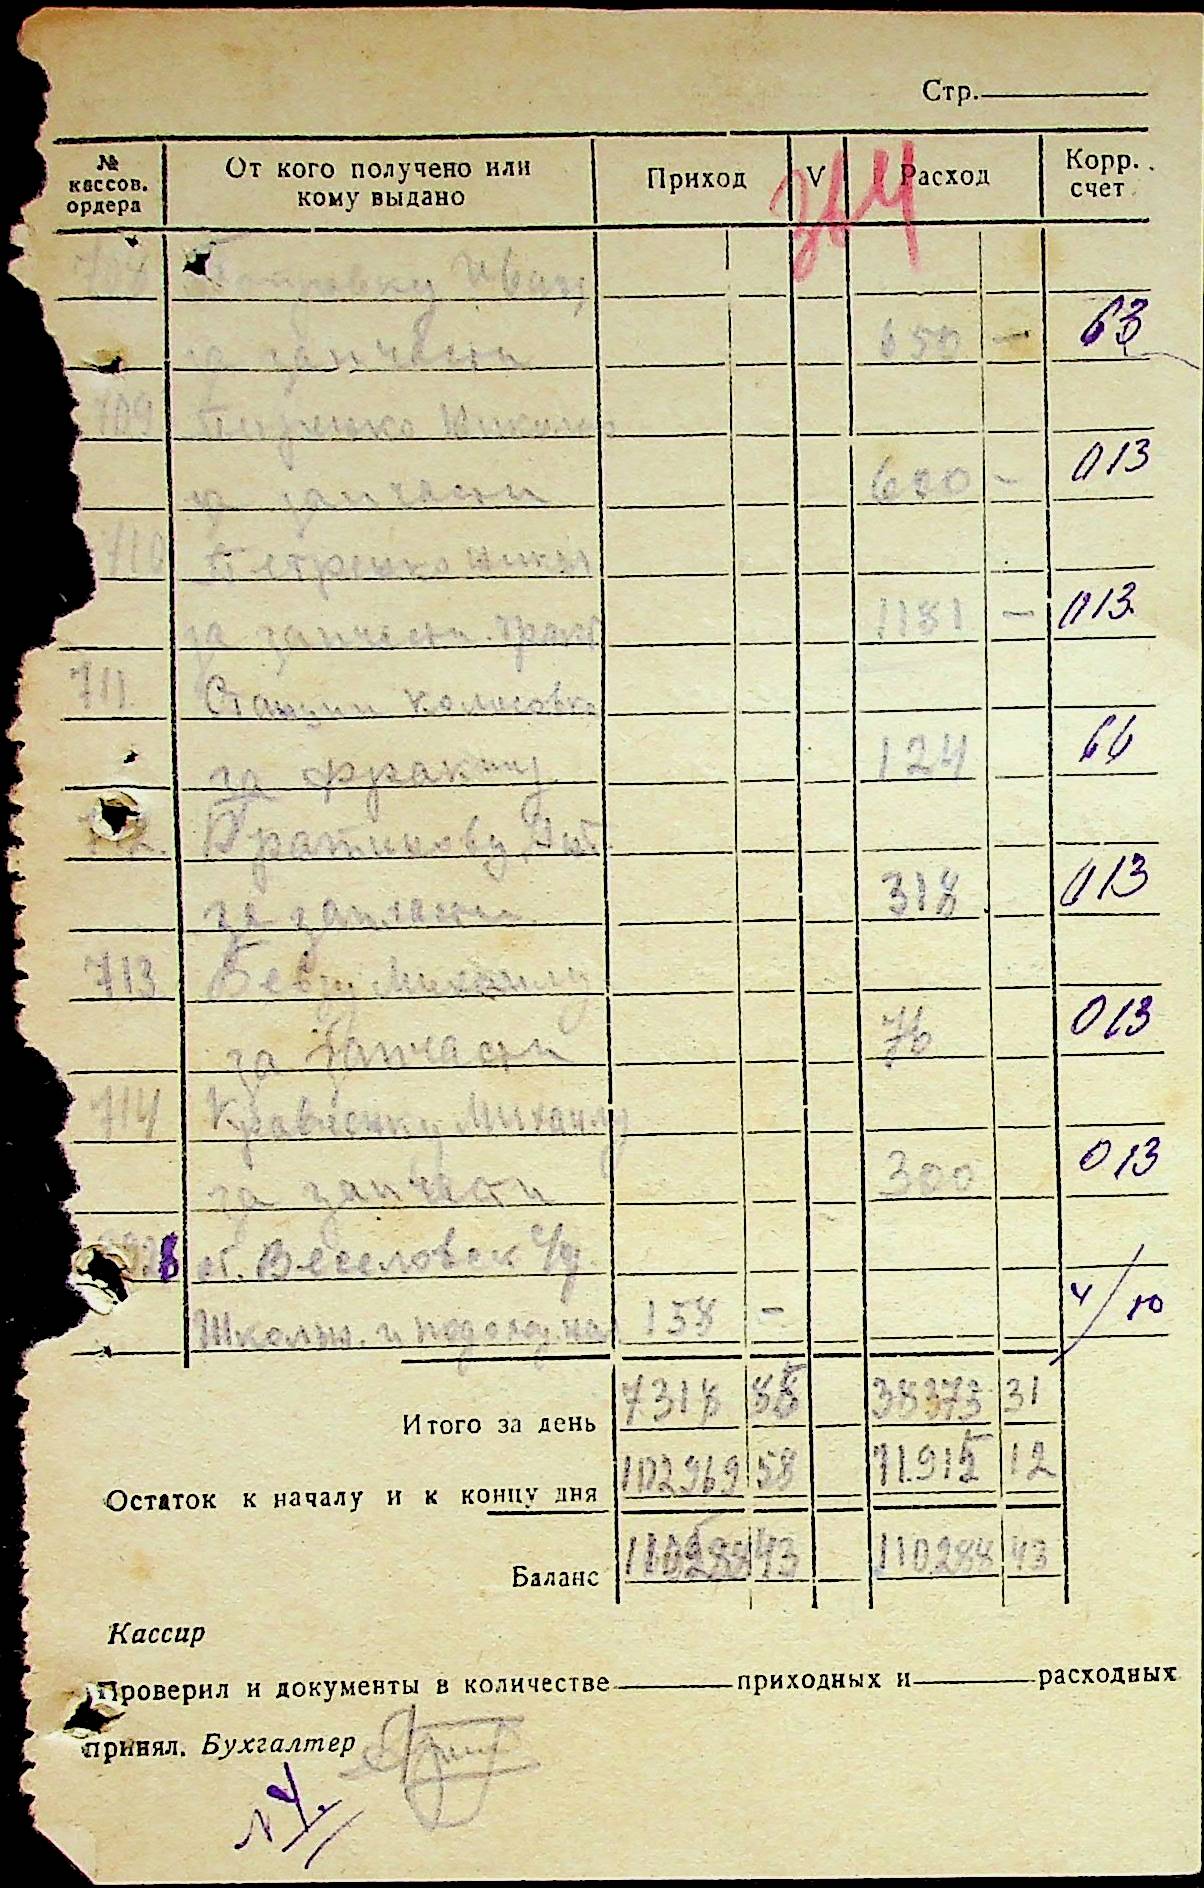 Стр.
№ кассов. ордера От кого получено или кому выдано Приход V Расход Корр. счет
Ивану
за запчасти 650 — 63
709 Николаю
за запчасти 600 - 013
710 Петренко Никол
за запчасти 1181 — 013
711 Станции Колосовка
за фракту 124 66
за запчасти 318 013
713 Михаилу
за запчасти 76 013
714 Кравченку Михаилу
за запчасти 300 013
от Веселовск с/с
Школьн. и подоход. нал 158 — 4/10
Итого за день 7318 85 38373 31
Остаток к началу и к концу дня 102969 58 71.915 12
Баланс 110288 43 110288 43
Кассир
Проверил и документы в количестве приходных и расходных
принял. Бухгалтер